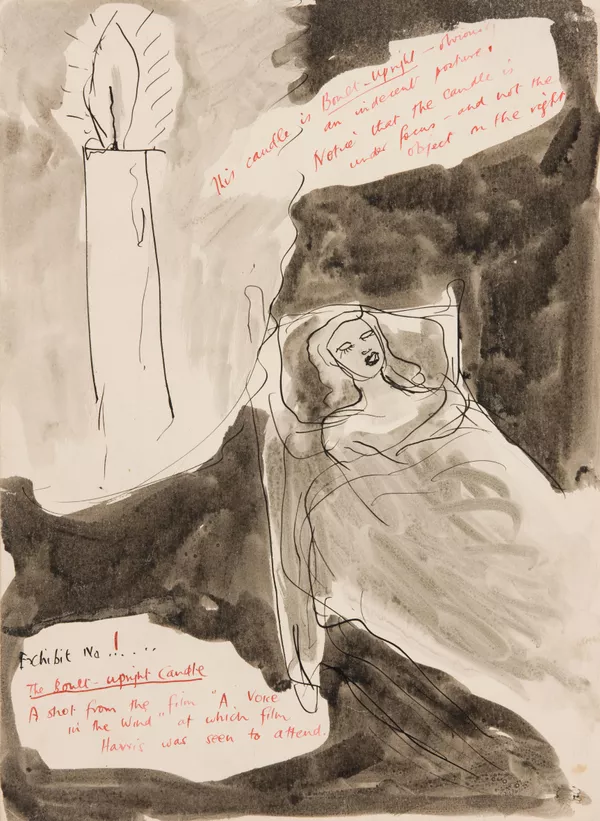 This candle is Boult-upright – obviously
an indecent posture.
Notice that the candle is
under focus – and not the
object on the right
Exhibit No 1.....
The Boult-upright Candle
A shot from the film "A Voice
in the Wind" at which film
Harris was seen to attend.